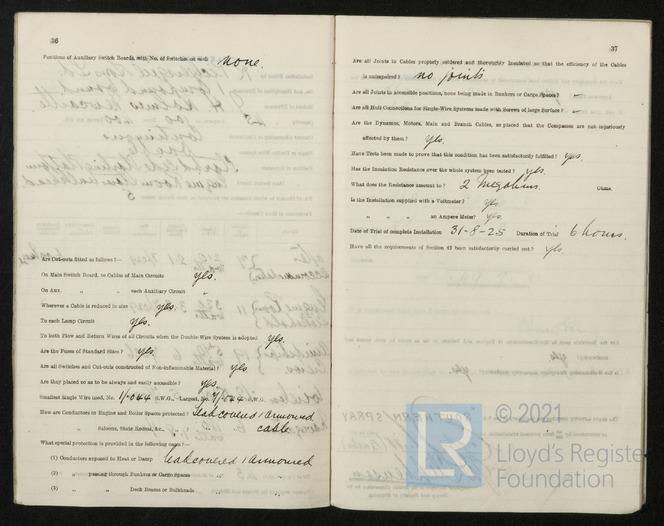 36
Positions of Auxiliary Switch Boards, with No. of Switches on each none.
Are Cut-outs fitted as follows?—
On Main Switch Board, to Cables of Main Circuits yes.
On Aux. " " each Auxiliary Circuit "
Wherever a Cable is reduced in size yes.
To each Lamp Circuit yes.
To both Flow and Return Wires of all Circuits when the Double-Wire System is adopted yes.
Are the Fuses of Standard Sizes? yes.
Are all Switches and Cut-outs constructed of Non-inflammable Material? yes
Are they placed so as to be always and easily accessible? yes.
Smallest Single Wire used, No. 1/.044 S.W.G., Largest, No. 7/.044 S.W.G.
How are Conductors in Engine and Boiler Spaces protected? Lead covered & armoured
" Saloons, State Rooms, &c., cable
What special protection is provided in the following cases?—
(1) Conductors exposed to Heat or Damp Lead covered & armoured
(2) " passing through Bunkers or Cargo Spaces "
(3) " " Deck Beams or Bulkheads "
37
Are all Joints in Cables properly soldered and thoroughly insulated so that the efficiency of the Cables
is unimpaired? no joints
Are all Joints in accessible positions, none being made in Bunkers or Cargo Spaces? —
Are all Hull Connections for Single-Wire Systems made with Screws of large Surface? —
Are the Dynamos, Motors, Main and Branch Cables, so placed that the Compasses are not injuriously
affected by them? yes.
Have Tests been made to prove that this condition has been satisfactorily fulfilled? yes.
Has the Insulation Resistance over the whole system been tested? yes.
What does the Resistance amount to? 2 Megohms. Ohms.
Is the Installation supplied with a Voltmeter? yes.
" " " an Ampere Meter? yes.
Date of Trial of complete Installation 31-8-25 Duration of Trial 6 hours.
Have all the requirements of Section 42 been satisfactorily carried out? yes.
© 2021
LR
Lloyd's Register
Foundation